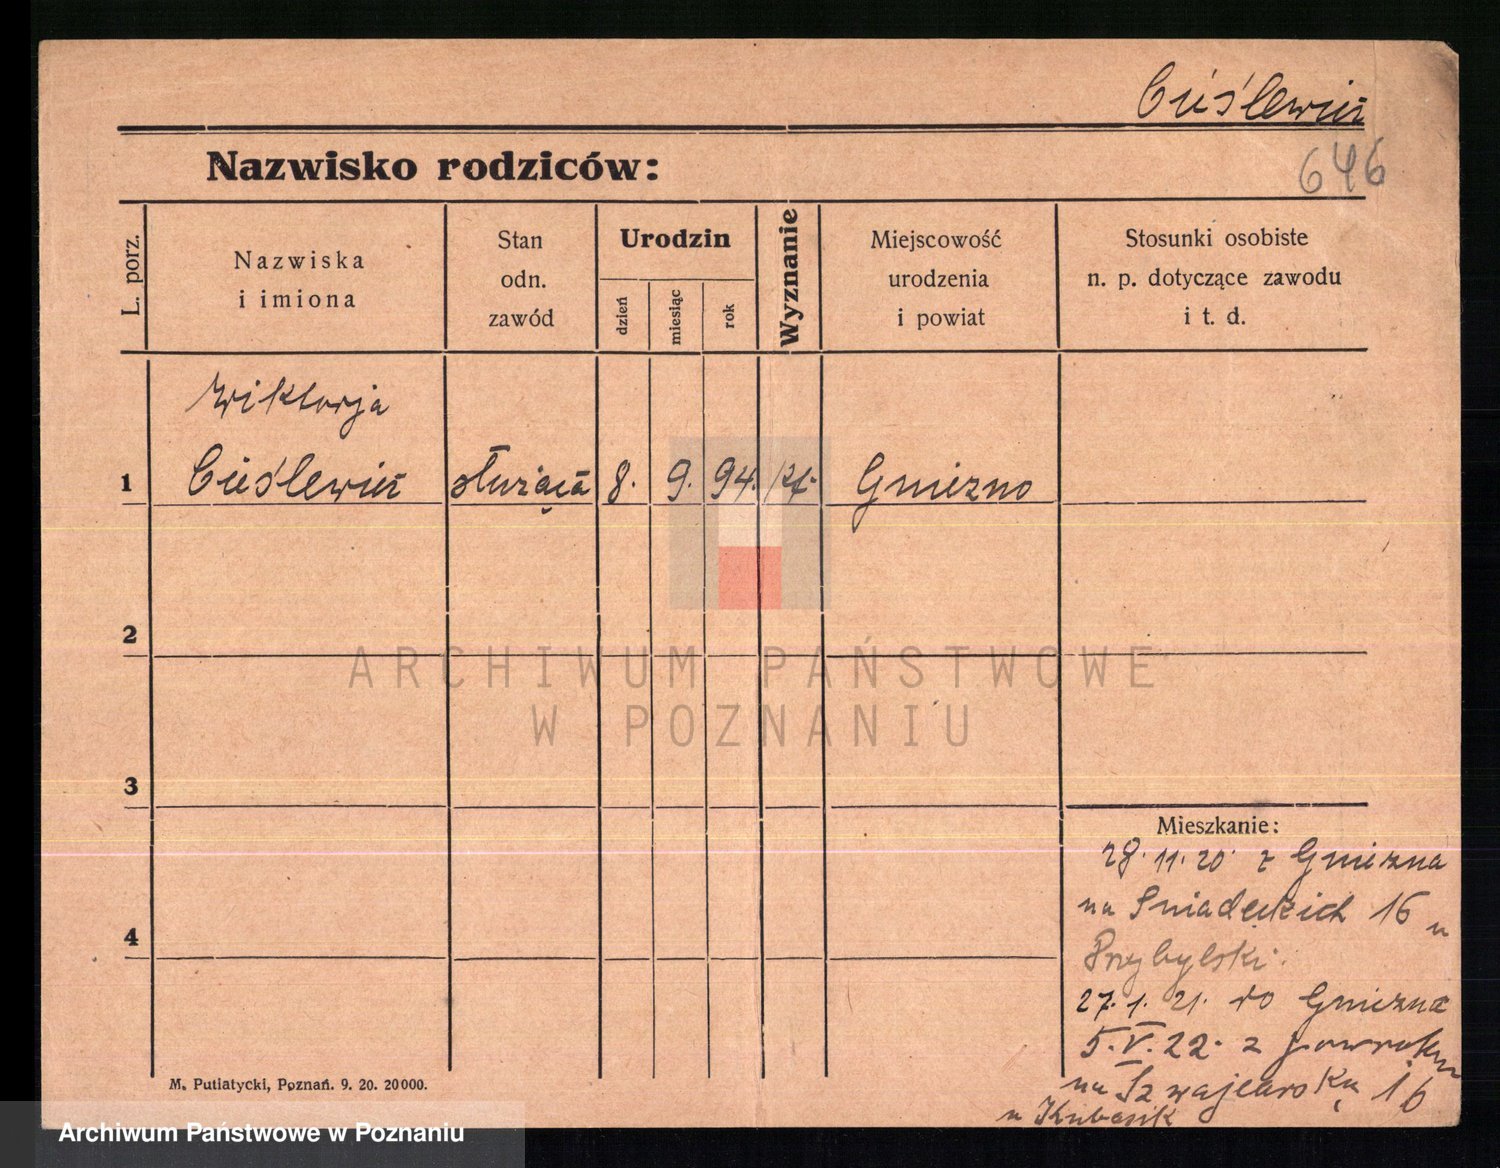 Cieślewicz
Nazwisko rodziców:
646
L. porz.
Nazwiska
i imiona
Stan
odn.
zawód
Urodzin
dzień
miesiąc
rok
Wyznanie
Miejscowość
urodzenia
i powiat
Stosunki osobiste
n. p. dotyczące zawodu
i t. d.
Wiktorja
1 Cieślewicz służąca 8. 9. 94. kt. Gniezno
2
ARCHIWUM PAŃSTWOWE
W POZNANIU
3
Mieszkanie:
28.11.20 z Gniezna
na Śniadeckich 16 u
4
Przybylski.
27.1.21. do Gniezna
5.V.22. z powrotem
na Szwajcarską 16
u Kubasik
M. Putiatycki, Poznań. 9. 20. 20000.
Archiwum Państwowe w Poznaniu